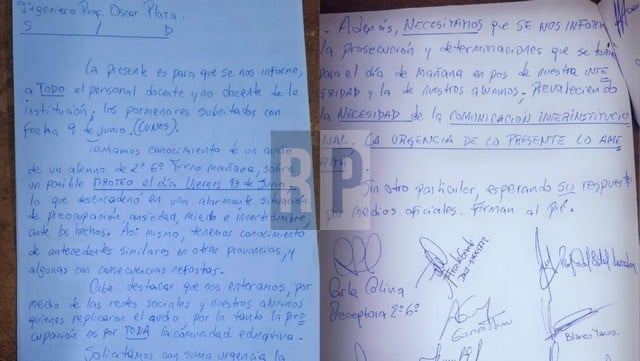 Ingeniero Prof. Oscar Plaza.
S / D
La presente es para que se nos informe,
a TODO el personal docente y no docente de la
institución, los pormenores suscitados con
fecha 9 de junio. (LUNES).
Tomamos conocimiento de un audio
de un alumno de 2º 6º Turno mañana, sobre
un posible TIROTEO el día Viernes 13 de Junio,
lo que desencadenó en una alarmante situación
de preocupación, ansiedad, miedo e incertidumbre
ante los hechos. Así mismo, tenemos conocimiento
de antecedentes similares en otras provincias, y
algunos con consecuencias nefastas.
Cabe destacar que nos enteramos, por
medio de las redes sociales y nuestros alumnos
quienes replicaron el audio, por lo tanto la preo
cupación es por TODA la comunidad educativa.
Solicitamos con suma urgencia la
Además, NECESITAMOS que SE NOS INFORM
la prosecución y determinaciones que se
para el día de mañana en pos de nuestra INTE
GRIDAD y la de nuestros alumnos, Prevaleciendo
la NECESIDAD de la COMUNICACIÓN INTERINSTITUCIO
NAL. LA URGENCIA DE LO PRESENTE LO AME
RITA.
Sin otro particular, esperando SU respues
por medios oficiales. Firman al pie.
Preceptora 2º 6º
Blanco
BP